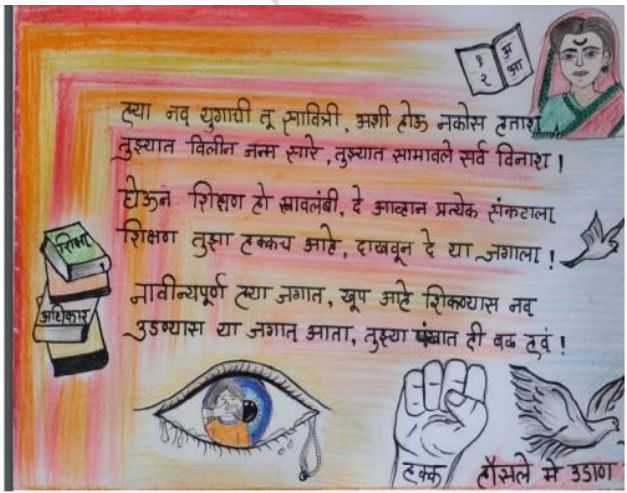 १ अ
२ आ
ह्या नव युगाची तू सावित्री, अशी होऊ नकोस हताश
तुझ्यात विलीन जन्म सारे, तुझ्यात सामावले सर्व विनाश !
घेऊन शिक्षण हो स्वावलंबी, दे आव्हान प्रत्येक संकटाला
शिक्षण तुझा हक्कच आहे, दाखवून दे या जगाला !
नावीन्यपूर्ण ह्या जगात, खूप आहे शिकण्यास नव
उडण्यास या जगात आता, तुझ्या पंखात ही बळ हवं !
शिक्षा
अधिकार
हक्क
हौसले मे उडाण